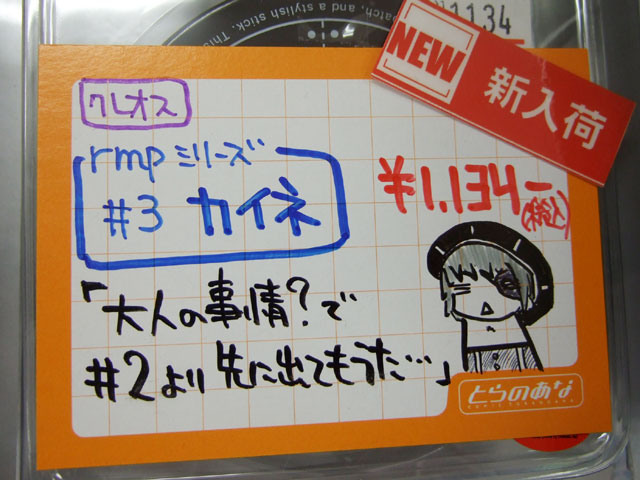 patch, and a stylish stick. This
1134
NEW
新入荷
クレオス
rmpシリーズ
#3 カイネ
¥1,134-
(税込)
「大人の事情?で
#2より先に出てもうた…」
とらのあな